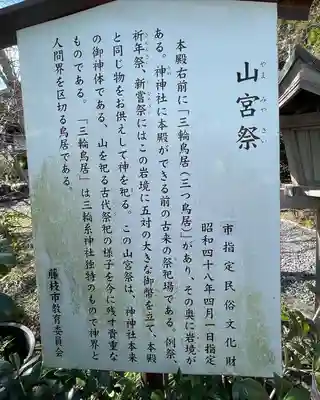 山宮祭
やまみやさい
市指定民俗文化財
昭和四十八年四月一日指定
本殿右前に「三輪鳥居(三つ鳥居)」があり、その奥に岩境が
ある。神神社に本殿ができる前の古来の祭祀場である。例祭、
祈年祭、新嘗祭にはこの岩境に五対の大きな御幣を立て、本殿
と同じ物をお供えして神を祀る。この山宮祭は、神神社本来
の御神体である、山を祀る古代祭祀の様子を今に残す貴重な
ものである。「三輪鳥居」は三輪系神社独特のもので神界と
人間界を区切る鳥居である。
藤枝市教育委員会